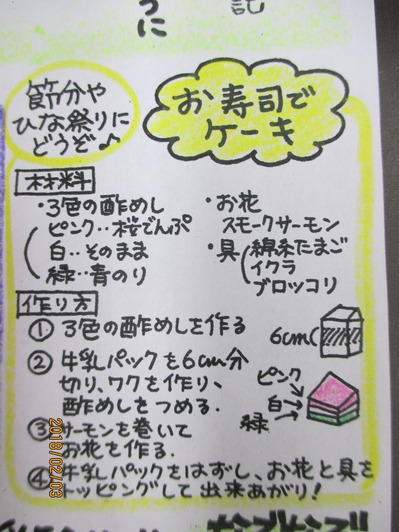 記
つに
節分や
ひな祭りに
どうぞ♪
お寿司で
ケーキ
材料
・3色の酢めし
ピンク‥桜でんぷ
白‥そのまま
緑‥青のり
・お花
スモークサーモン
・具 綿糸たまご
イクラ
ブロッコリ
作り方
① 3色の酢めしを作る
6cm
② 牛乳パックを6cm分
切り、ワクを作り、
酢めしをつめる.
ピンク
白
緑
③ サーモンを巻いて
お花を作る.
④ 牛乳パックをはずし、お花と具を
トッピングして出来あがり!
2018/02/03